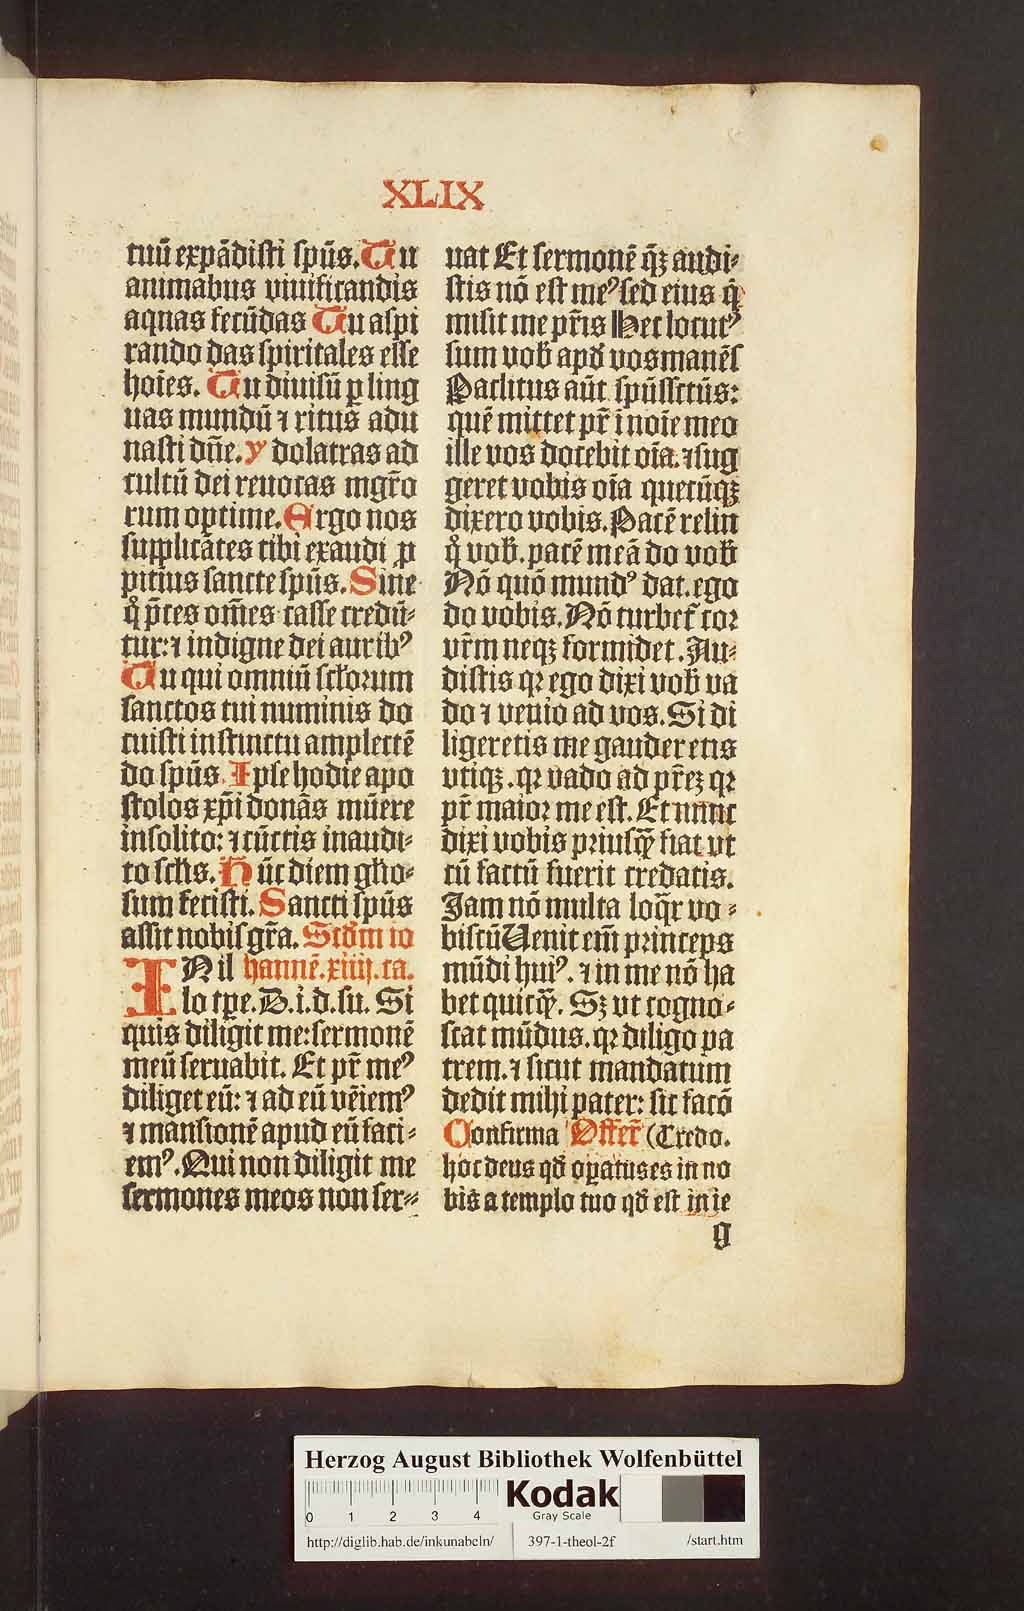 XLIX
tuū expādisti spūs. Tu
animabus viuificandis
aquas fecūdas Tu aspi
rando das spiritales esse
hoīes. Tu diuisū ꝑ ling
uas mundū ⁊ ritus adu
nasti dn̄e. y dolatras ad
cultū dei reuocas mgr̄o
rum optime. Ergo nos
supplicātes tibi exaudi ꝓ
pitius sancte spūs. Sine
q̊ p̄ces om̄es casse credū⸗
tur: ⁊ indigne dei aurib⁹
Tu qui omniū sctōrum
sanctos tui numinis do
cuisti instinctu amplectē
do spūs. Ipse hodie apo
stolos xp̄i donās mūere
insolito: ⁊ cūctis inaudi⸗
to sclīs. Hūc diem glīo⸗
sum fecisti. Sancti spūs
assit nobis gr̄a. Scd̄m io
INil hannē. xiiij. ca.
lo tꝑe. D. i. d. su. Si
quis diligit me: sermonē
meū seruabit. Et pr̄ me⁹
diliget eū: ⁊ ad eū vēiem⁹
⁊ mansionē apud eū faci⸗
em⁹. Qui non diligit me
sermones meos non ser⸗
uat Et sermonē q̄ꝫ audi⸗
stis nō est me⁹ sed eius q̄
misit me pr̄is Hec locut⁹
sum vob̄ apd̄ vos manēs
Paclitus aūt spūssctūs:
quē mittet pr̄ i noīe meo
ille vos docebit oīa. ⁊ sug
geret vobis oīa quecūqꝫ
dixero vobis. Pacē relin
q̊ vob̄. pacē meā do vob̄
Nō quō mund⁹ dat. ego
do vobis. Nō turbet᷑ cor
vr̄m neqꝫ formidet. Au⸗
distis qꝛ ego dixi vob̄ va
do ⁊ venio ad vos. Si di
ligeretis me gauderetis
vtiqꝫ. qꝛ vado ad pr̄eꝫ qꝛ
pr̄ maior me est. Et nunc
dixi vobis priusq̄ꝫ fiat vt
cū factū fuerit credatis.
Jam nō multa loq̄r vo⸗
biscū Uenit em̄ princeps
mūdi hui⁹. ⁊ in me nō ha
bet quicq̄ꝫ. Sꝫ vt cogno⸗
scat mūdus. qꝛ diligo pa
trem. ⁊ sicut mandatum
dedit mihi pater: sic facō
Confirma Offer̄ (Credo.
hoc deus qd̄ oꝑatus es in no
bis a templo tuo qd̄ est in ie
g
Herzog August Bibliothek Wolfenbüttel
0 1 2 3 4
Kodak
Gray Scale
http://diglib.hab.de/inkunabeln/ 397-1-theol-2f /start.htm